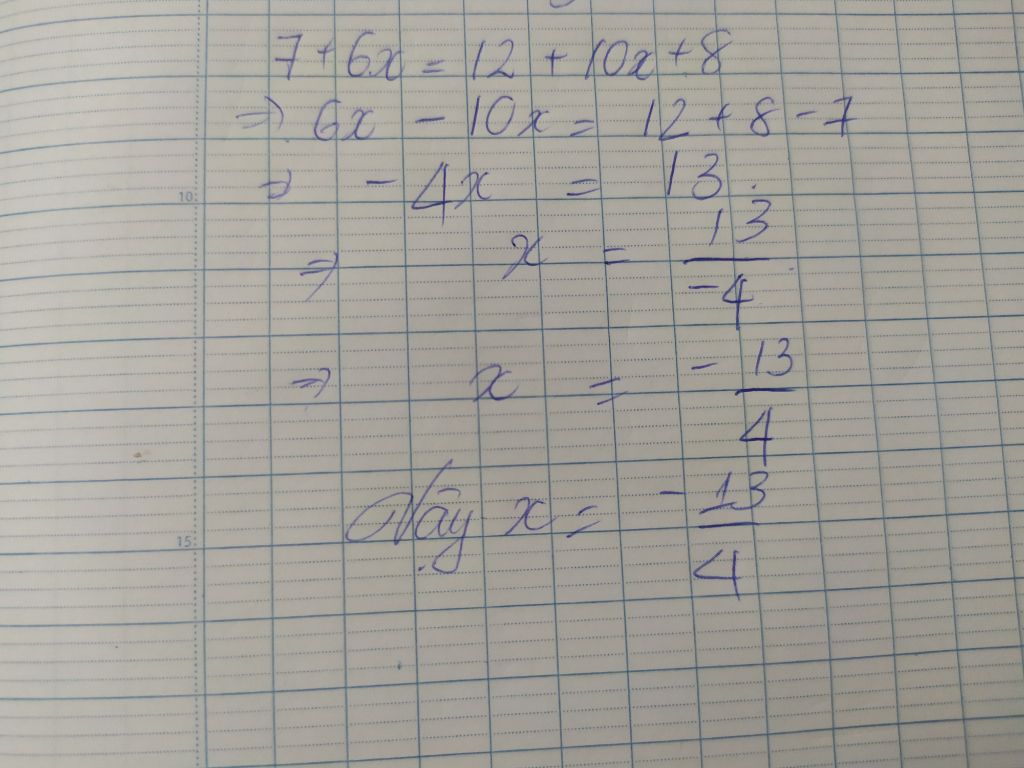 7 + 6x = 12 + 10x + 8
⇒ 6x - 10x = 12 + 8 - 7
⇒ - 4x = 13
⇒ x = 13/-4
⇒ x = - 13/4
Vậy x = - 13/4
10
15